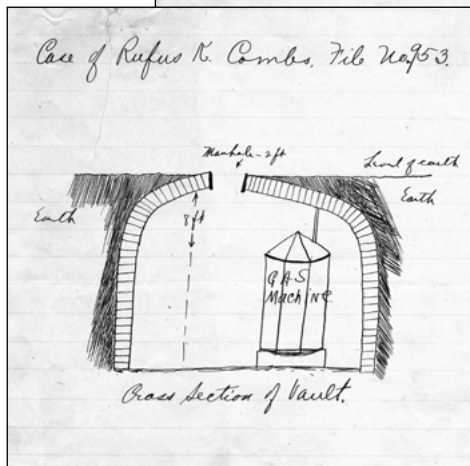 Case of Rufus K. Combs, File No. 953.
Manhole - 2 ft
Level of earth
Earth
Earth
8 ft
GAS
Machine
Cross Section of Vault.